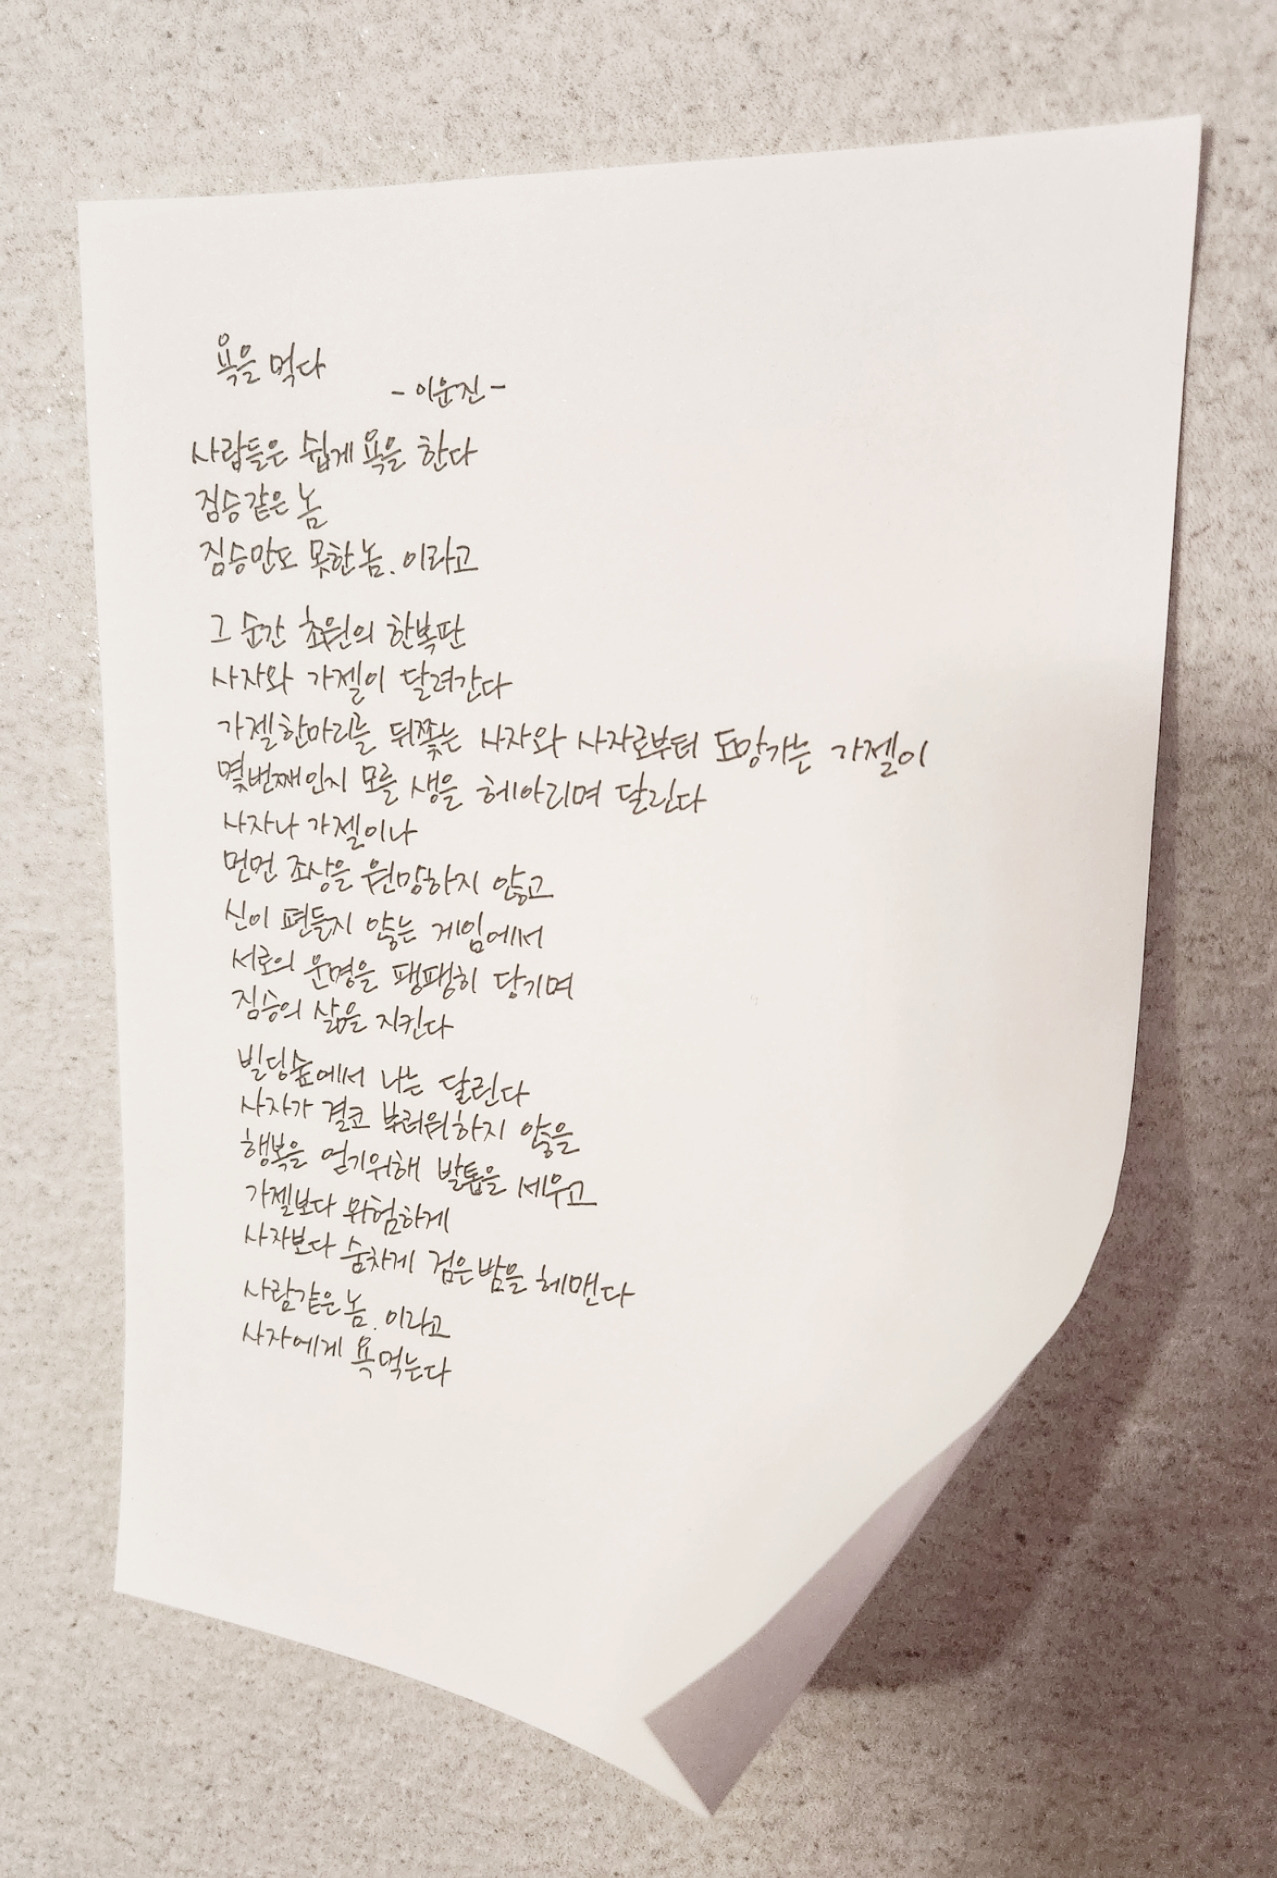 욕을 먹다
- 이운진 -
사람들은 쉽게 욕을 한다
짐승같은 놈
짐승만도 못한 놈. 이라고
그 순간 초원의 한복판
사자와 가젤이 달려간다
가젤한마리를 뒤쫓는 사자와 사자로부터 도망가는 가젤이
몇번째인지 모를 생을 헤아리며 달린다
사자나 가젤이나
먼먼 조상을 원망하지 않고
신이 편들지 않는 게임에서
서로의 운명을 팽팽히 당기며
짐승의 삶을 지킨다
빌딩숲에서 나는 달린다
사자가 결코 부러워하지 않을
행복을 얻기위해 발톱을 세우고
가젤보다 위험하게
사자보다 숨차게 검은밤을 헤맨다
사람같은 놈. 이라고
사자에게 욕먹는다